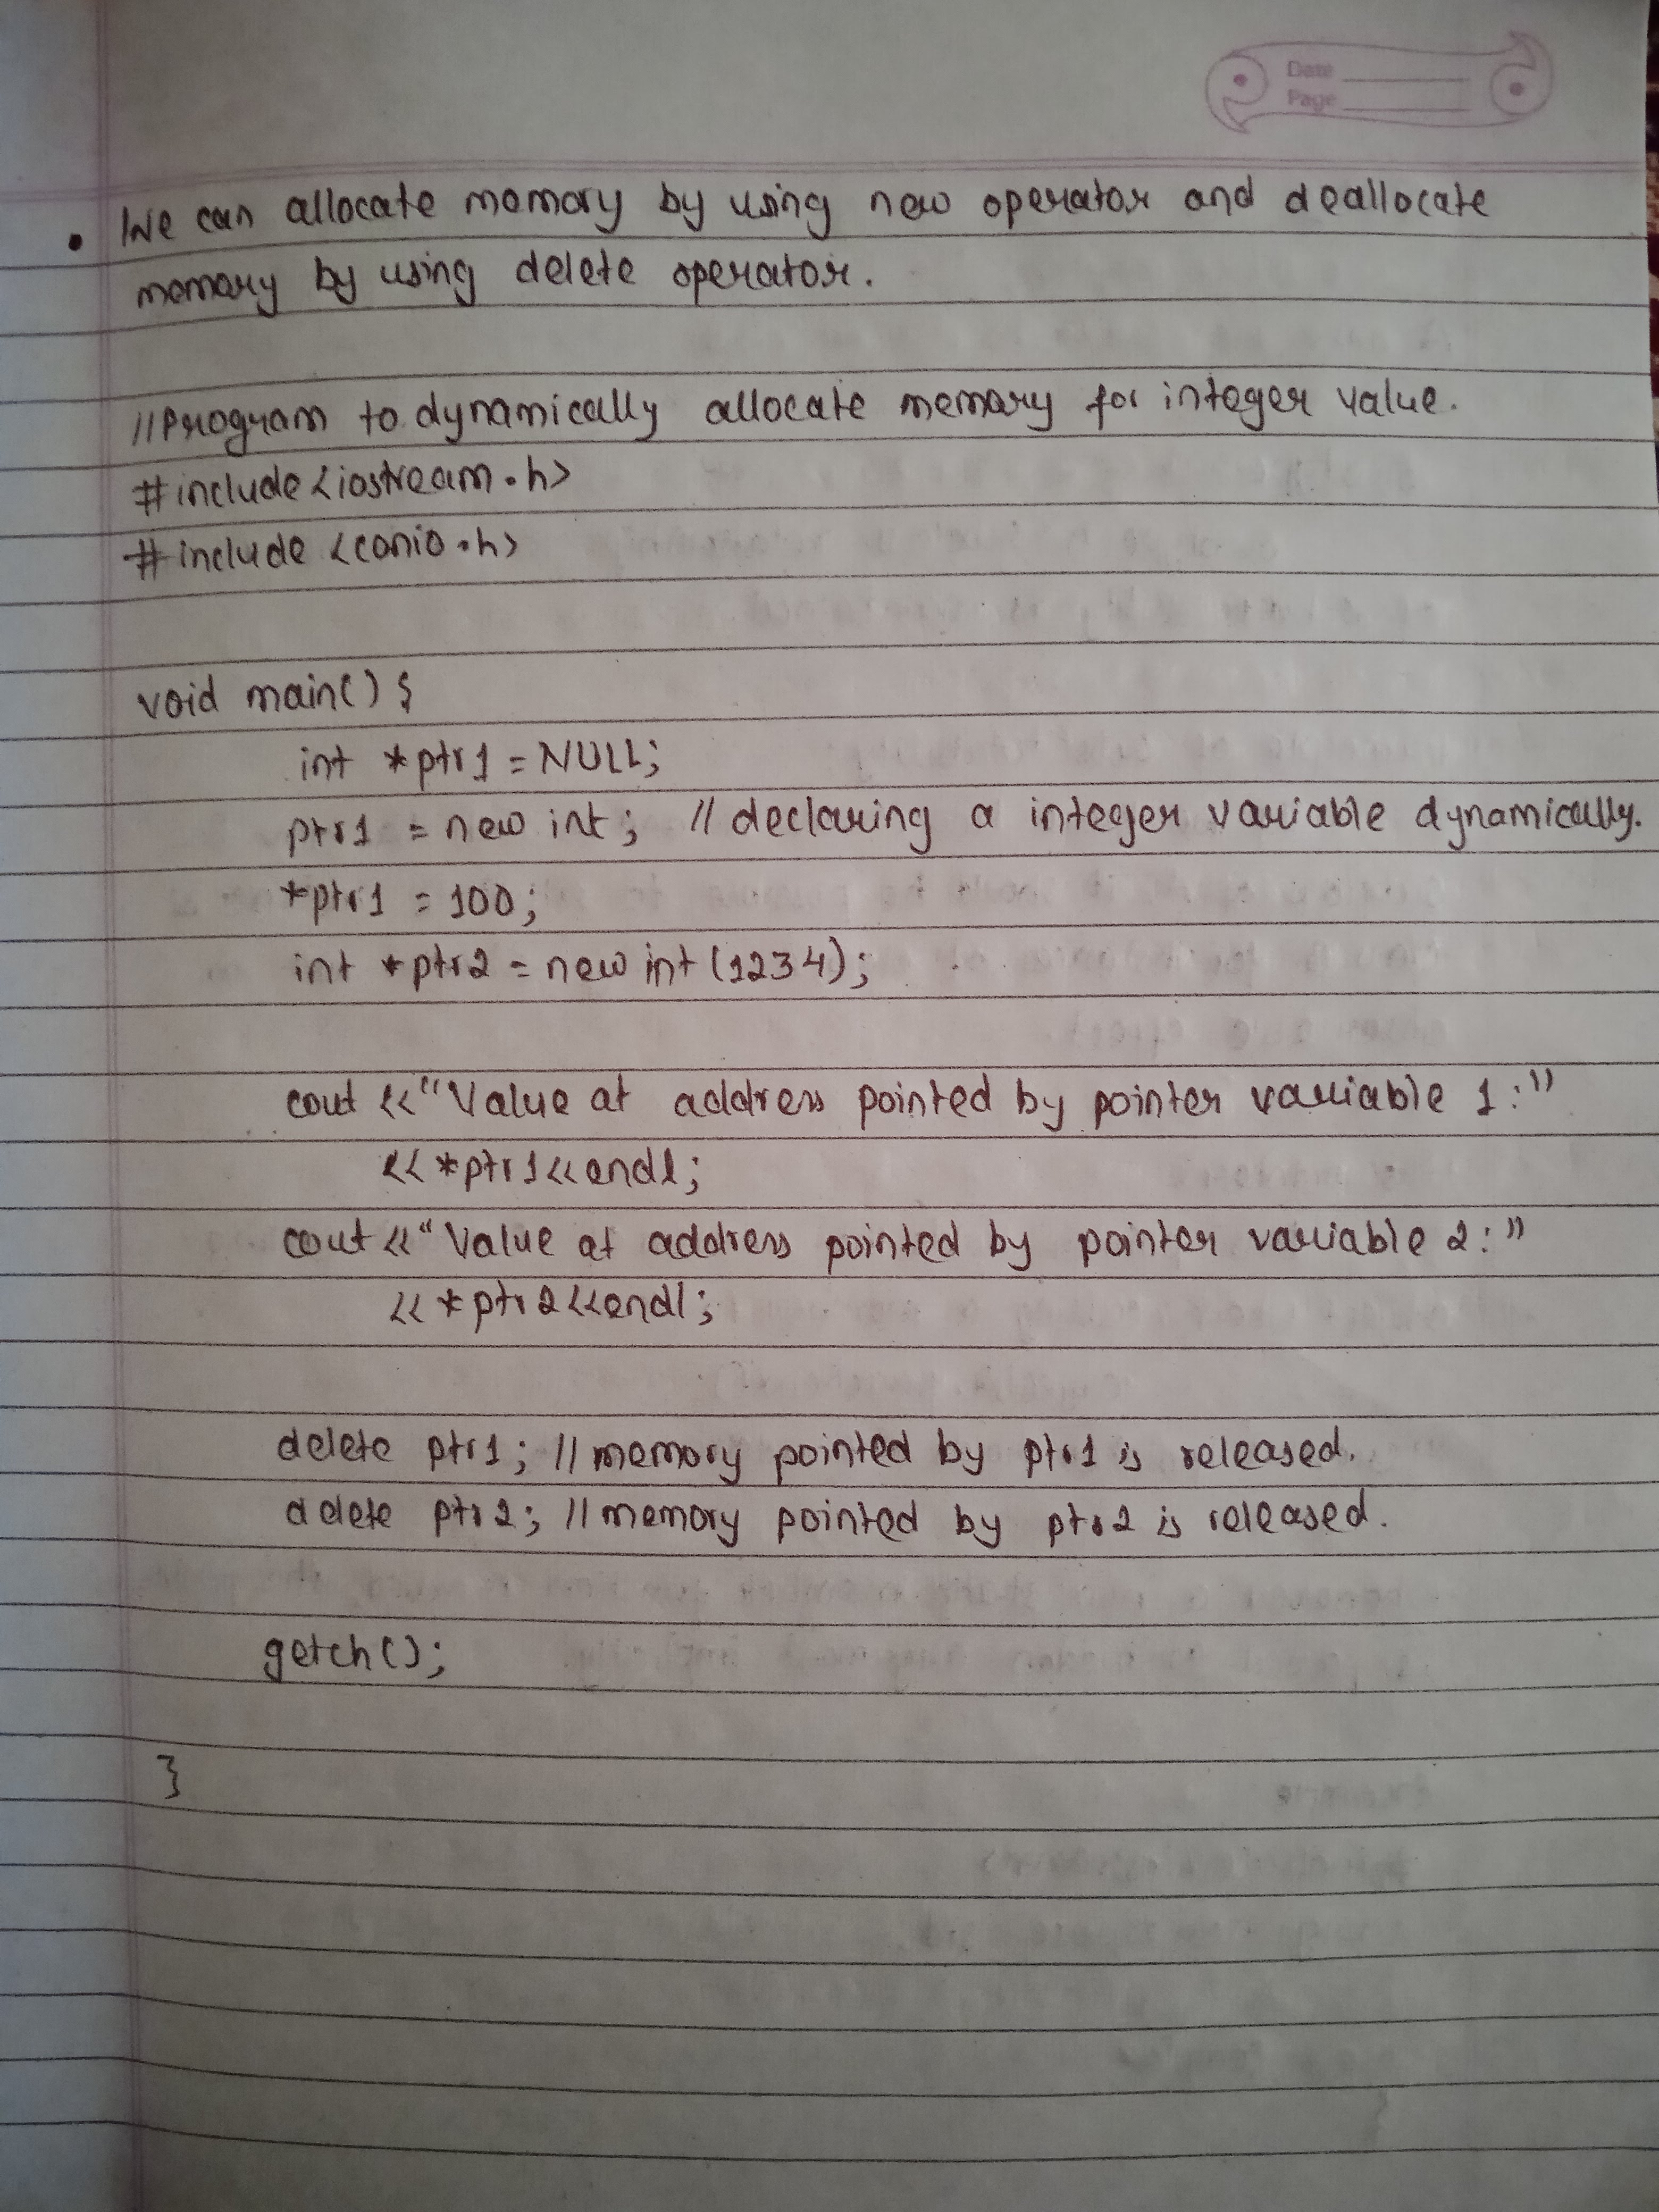 Date
Page
• We can allocate memory by using new operator and deallocate
memory by using delete operator.
//Program to dynamically allocate memory for integer value.
#include<iostream.h>
#include <conio.h>
void main() {
int *ptr1 = NULL;
ptr1 = new int; // declaring a integer variable dynamically.
*ptr1 = 100;
int *ptr2 = new int (1234);
cout <<"Value at address pointed by pointer variable 1:"
<< *ptr1<<endl;
cout <<"Value at address pointed by pointer variable 2:"
<< *ptr2<<endl;
delete ptr1; //memory pointed by ptr1 is released.
delete ptr2; //memory pointed by ptr2 is released.
getch();
}